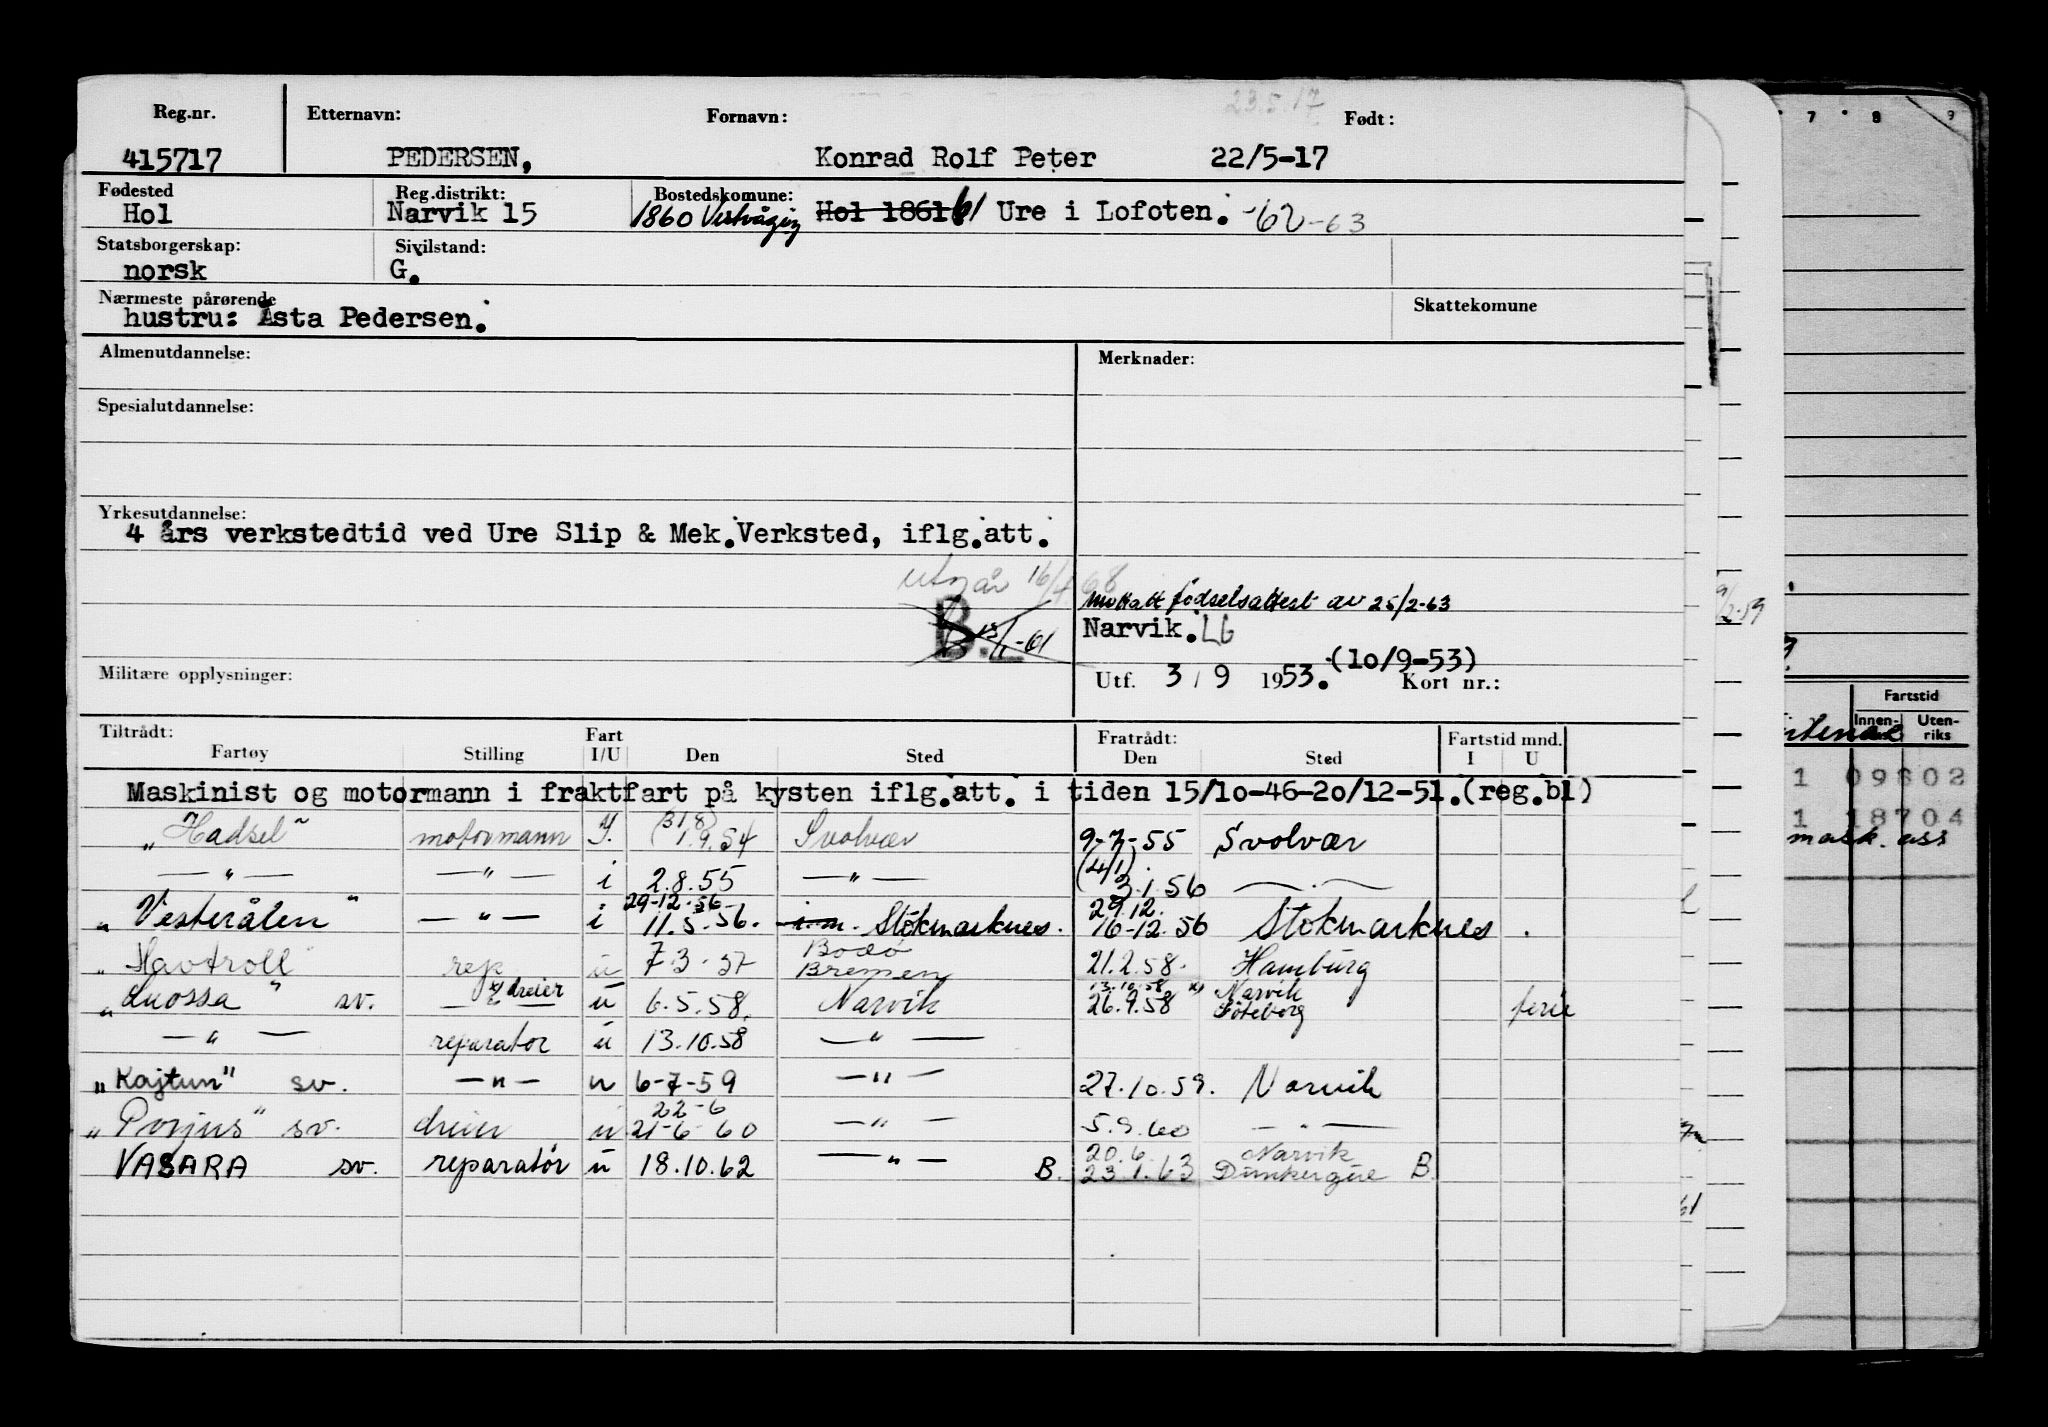 23.5.17
Reg.nr. Etternavn: Fornavn: Født:
415717 PEDERSEN, Konrad Rolf Peter 22/5-17
Fødested Reg.distrikt: Bostedskomune:
Hol Narvik 15 1860 Vestvågøy Hol 1861 61 Ure i Lofoten. -62-63
Statsborgerskap: Sivilstand:
norsk G.
Nærmeste pårørende Skattekomune
hustru: Åsta Pedersen.
Almenutdannelse: Merknader:
Spesialutdannelse:
Yrkesutdannelse:
4 års verkstedtid ved Ure Slip & Mek.Verksted, iflg.att.
utgår 16/4 68
Mottatt fødselsattest av 25/2-63
B. -61 Narvik. LG
(10/9-53)
Militære opplysninger: Utf. 3 / 9 1953. Kort nr.:
Tiltrådt: Fart Fratrådt: Fartstid mnd.
Fartøy Stilling I/U Den Sted Den Sted I U
Maskinist og motormann i fraktfart på kysten iflg.att. i tiden 15/10-46-20/12-51.(reg.bl)
(31 8)
"Hadsel" motormann I. 1.9.54 Svolvær 9-7-55 Svolvær
(4/1)
— " — — " — i 2.8.55 — " — 3.1.56 — . —
29-12-56 29.12.
"Vesterålen" — " — i 11.5.56. i.m. Stokmarknes. 16-12.56 Stokmarknes.
Bodø
"Havtroll" rep u 7.3.57 Bremen 21.2.58. Hamburg
dreier 13.10.58 x) Narvik
"Luossa" sv. — " — u 6.5.58. Narvik 26.9.58 Göteborg ferie
— " — reparatør u 13.10.58 — " —
"Kajtum" sv. — " — u 6-7-59 — " — 27.10.59. Narvik
22-6
"Porjus" sv. dreier u 21-6-60 — " — 5.9.60 — " —
20.6. Narvik
VASARA sv. reparatør u 18.10.62 — " — B. 23.1.63 Dunkerque B.
7 8 9
/2-59
Fartstid
Innen- Uten-
riks
1 09802
1 18704
mask. ass
61